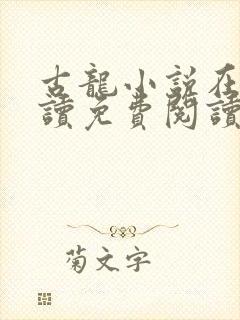 古龍小說在
讀免費閱讀
菊文字